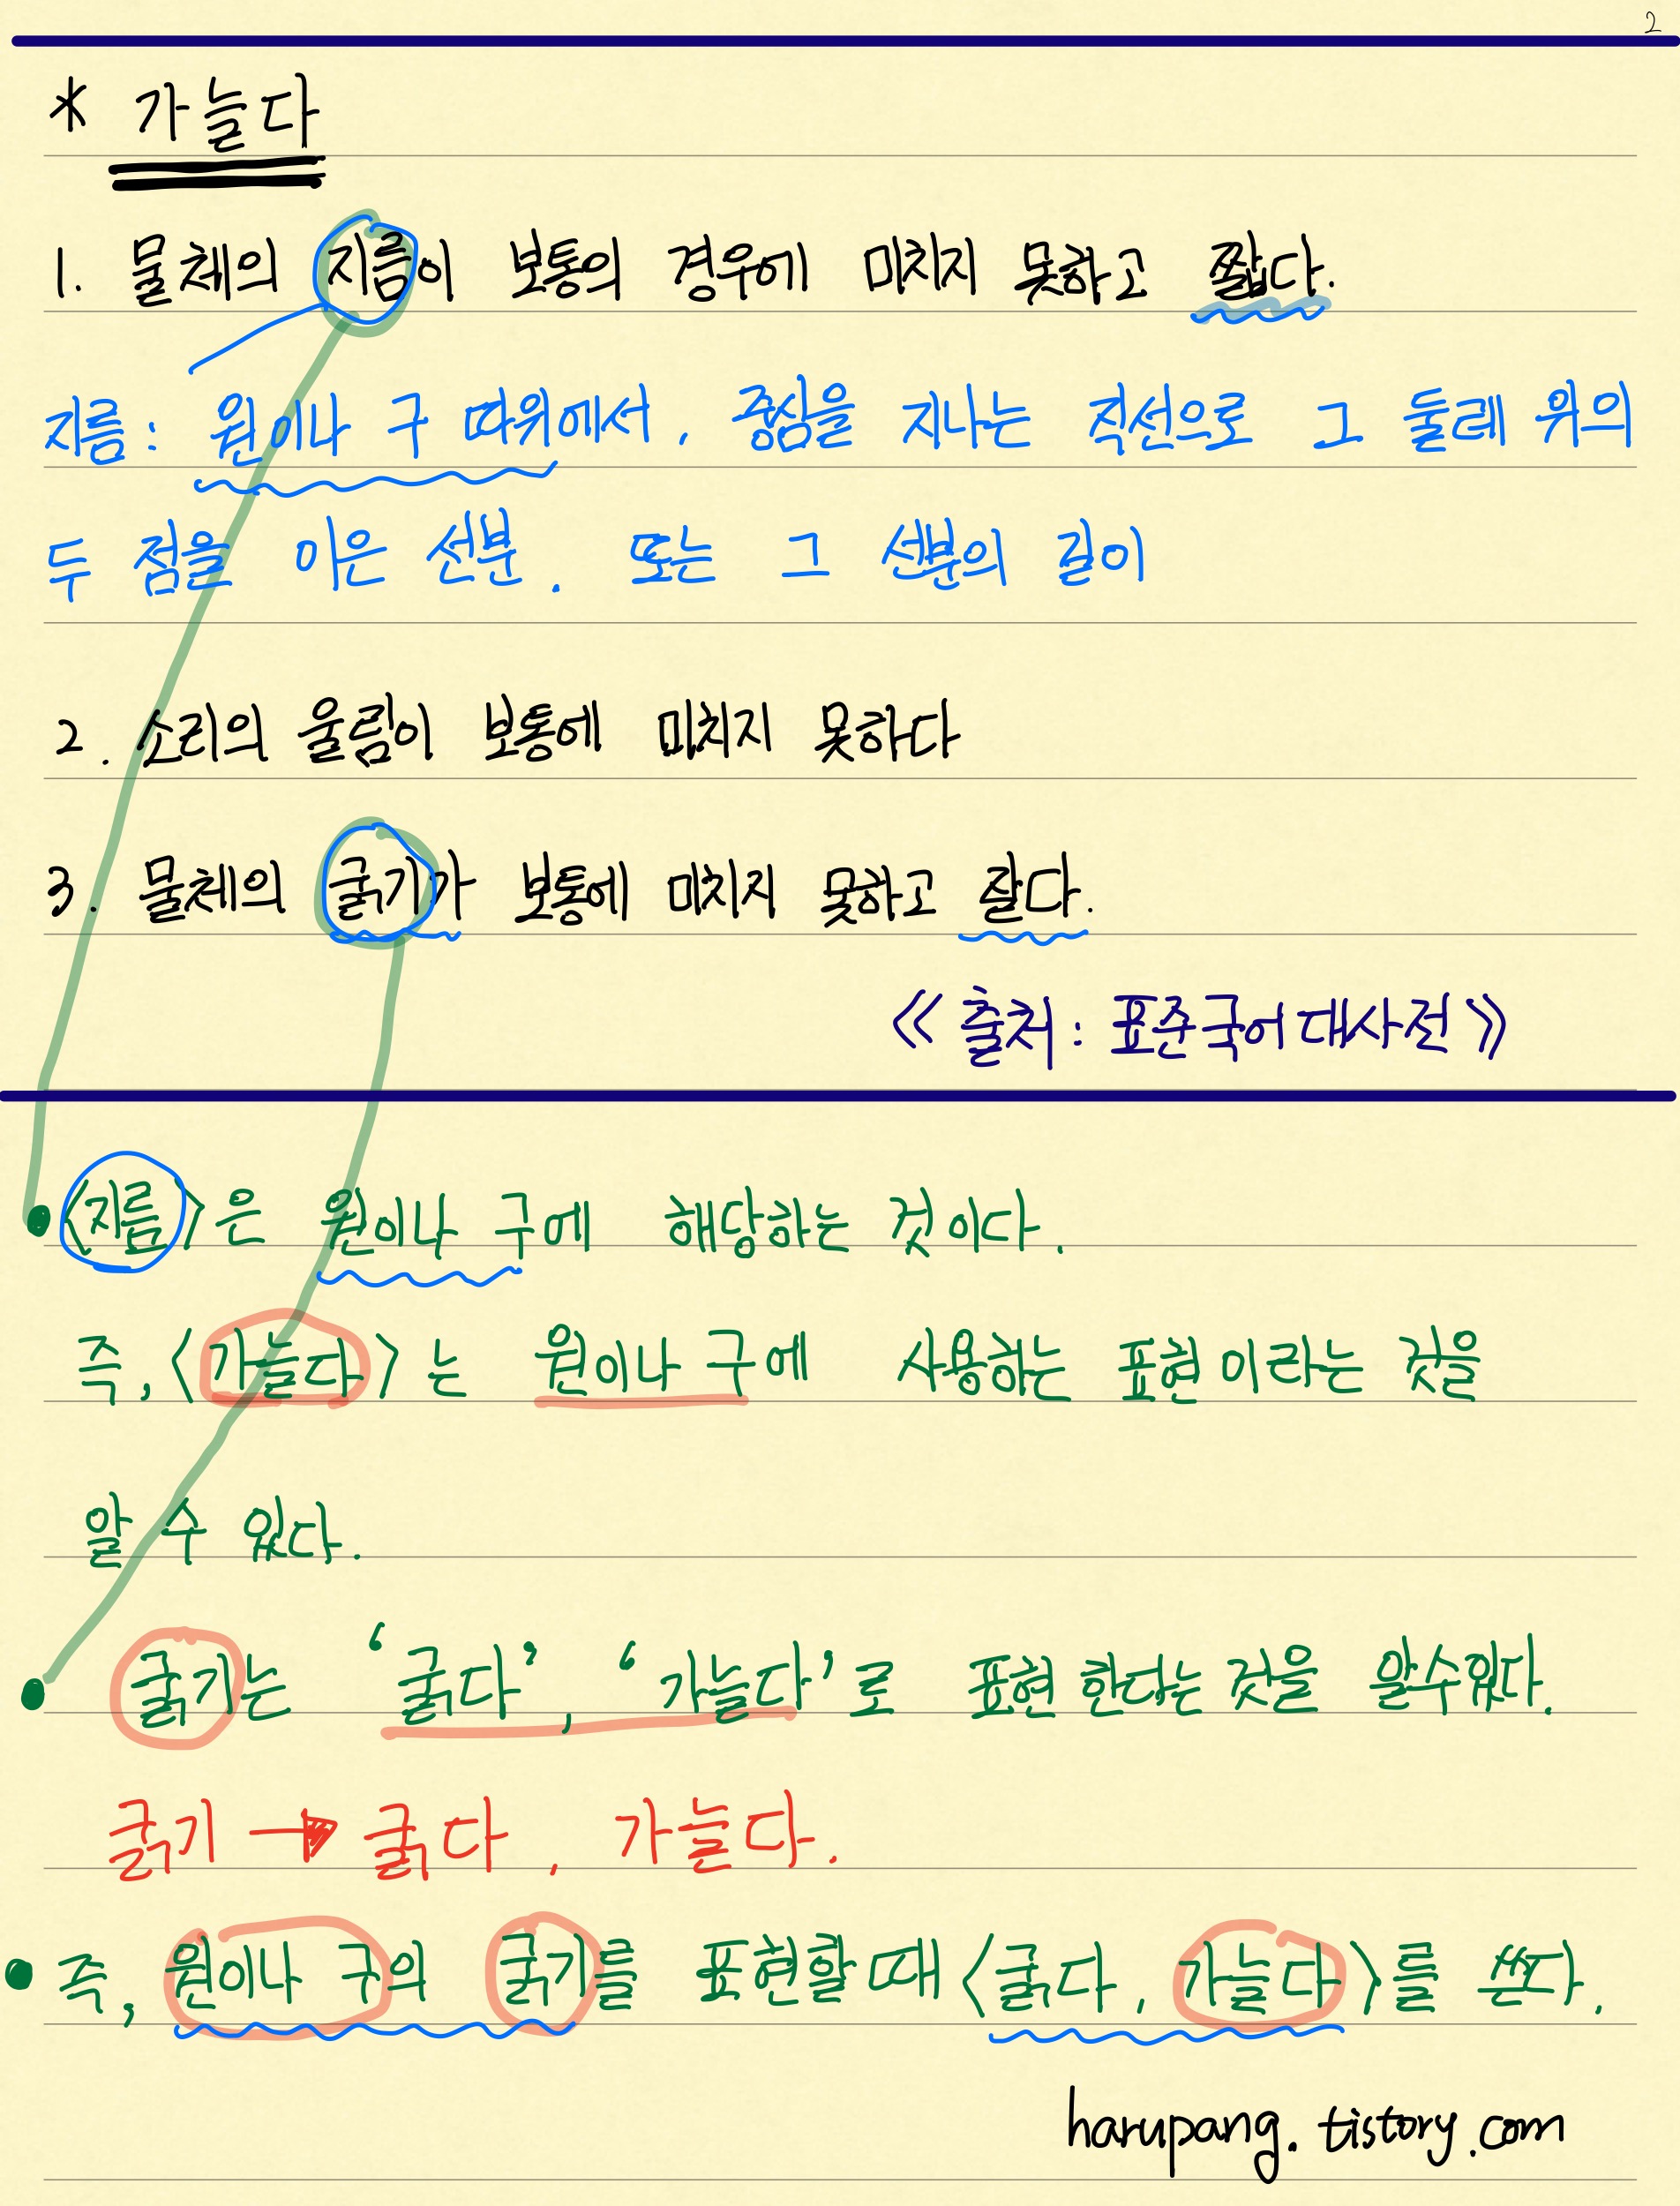 2
* 가늘다
1. 물체의 지름이 보통의 경우에 미치지 못하고 짧다.
지름: 원이나 구 따위에서, 중심을 지나는 직선으로 그 둘레 위의
두 점을 이은 선분. 또는 그 선분의 길이
2. 소리의 울림이 보통에 미치지 못하다
3. 물체의 굵기가 보통에 미치지 못하고 잘다.
《출처: 표준국어대사전》
• <지름>은 원이나 구에 해당하는 것이다.
즉, <가늘다>는 원이나 구에 사용하는 표현이라는 것을
알 수 있다.
• 굵기는 '굵다', '가늘다'로 표현 한다는 것을 알수있다.
굵기 → 굵다, 가늘다.
• 즉, 원이나 구의 굵기를 표현할 때 <굵다, 가늘다>를 쓴다.
harupang.tistory.com